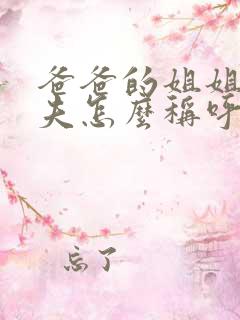 爸爸的姐姐
夫怎麼稱呼
忘了